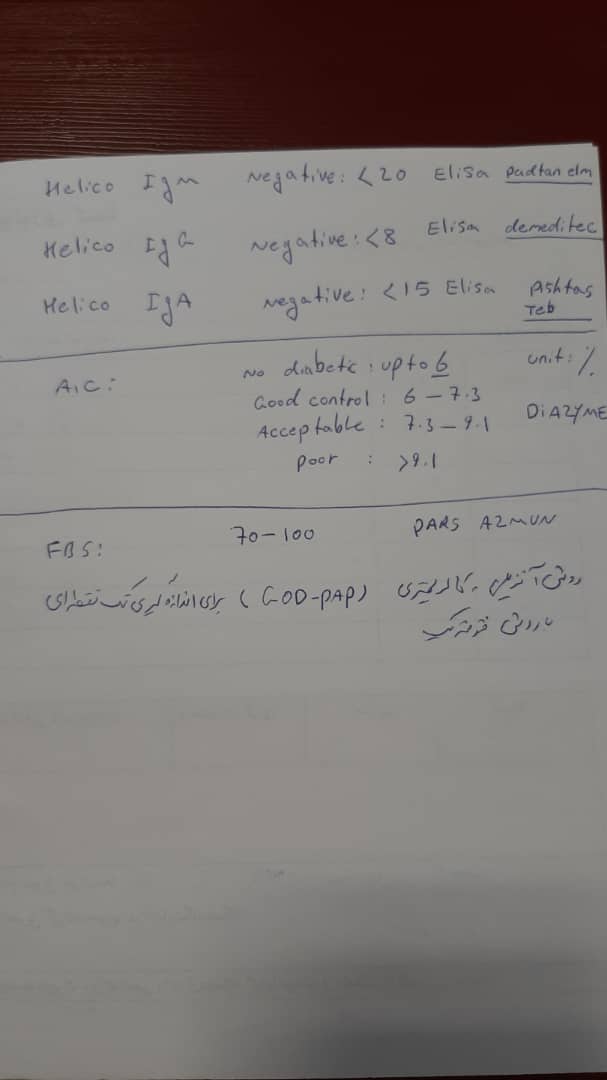 Helico IgM Negative: <20 Elisa padtan elm
Helico IgG Negative: <8 Elisa demeditec
Helico IgA Negative: <15 Elisa Ashtas
Teb
A1C: No diabetic: up to 6 unit: %
Good control: 6 – 7.3 DiAZYME
Acceptable: 7.3 – 9.1
poor: >9.1
FBS: 70–100 PARS AZMUN
روش آنزیمی - کالریمتری (GOD-PAP) برای اندازه گیری تک نقطه ای
با روش فتومتریک